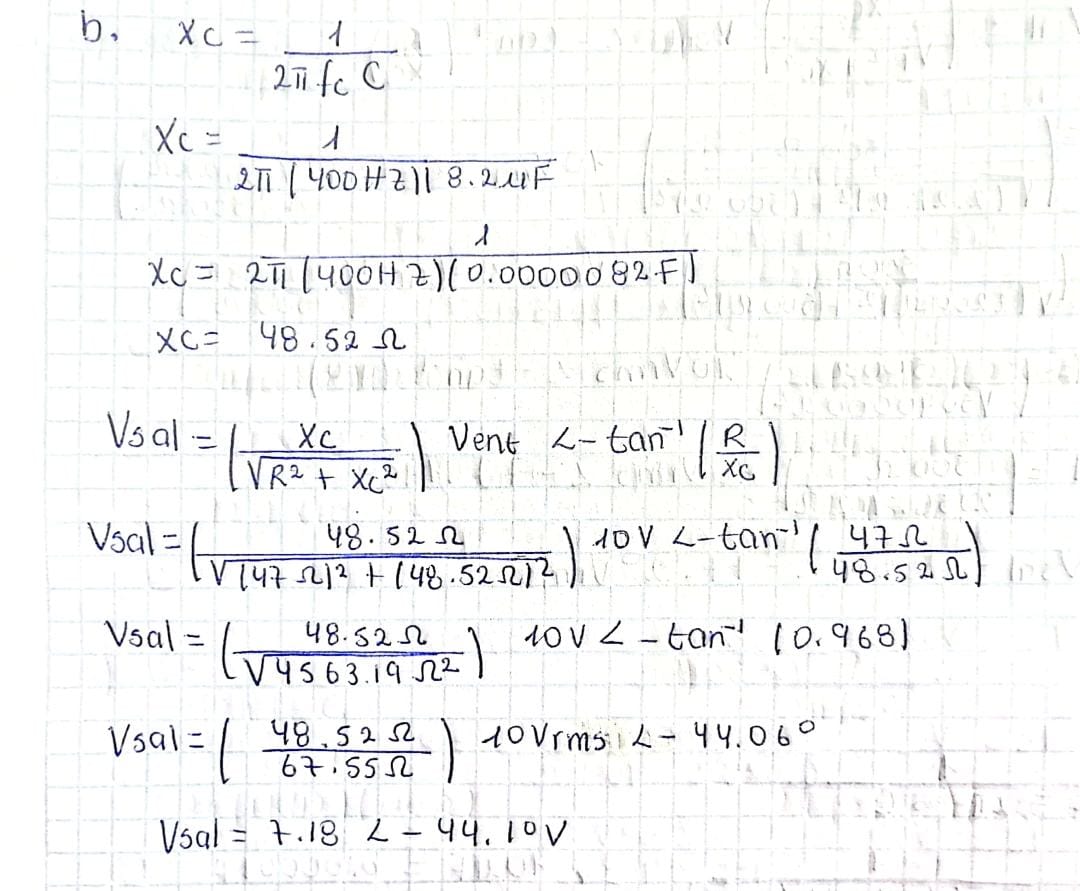 b. Xc = 1 / 2π fc C
Xc = 1 / 2π (400HZ)( 8.2µF
Xc = 1 / 2π (400HZ)(0.0000082F)
Xc = 48.52 Ω
Vsal = (Xc / √R² + Xc²) Vent ∠-tan⁻¹ (R / XC)
Vsal = (48.52 Ω / √(47 Ω)² + (48.52Ω)²) 10V ∠-tan⁻¹ (47Ω / 48.52Ω)
Vsal = (48.52 Ω / √4563.19 Ω²) 10V ∠ -tan⁻¹ (0.968)
Vsal = (48.52 Ω / 67.55 Ω) 10Vrms ∠ - 44.06°
Vsal = 7.18 ∠ - 44.1°V